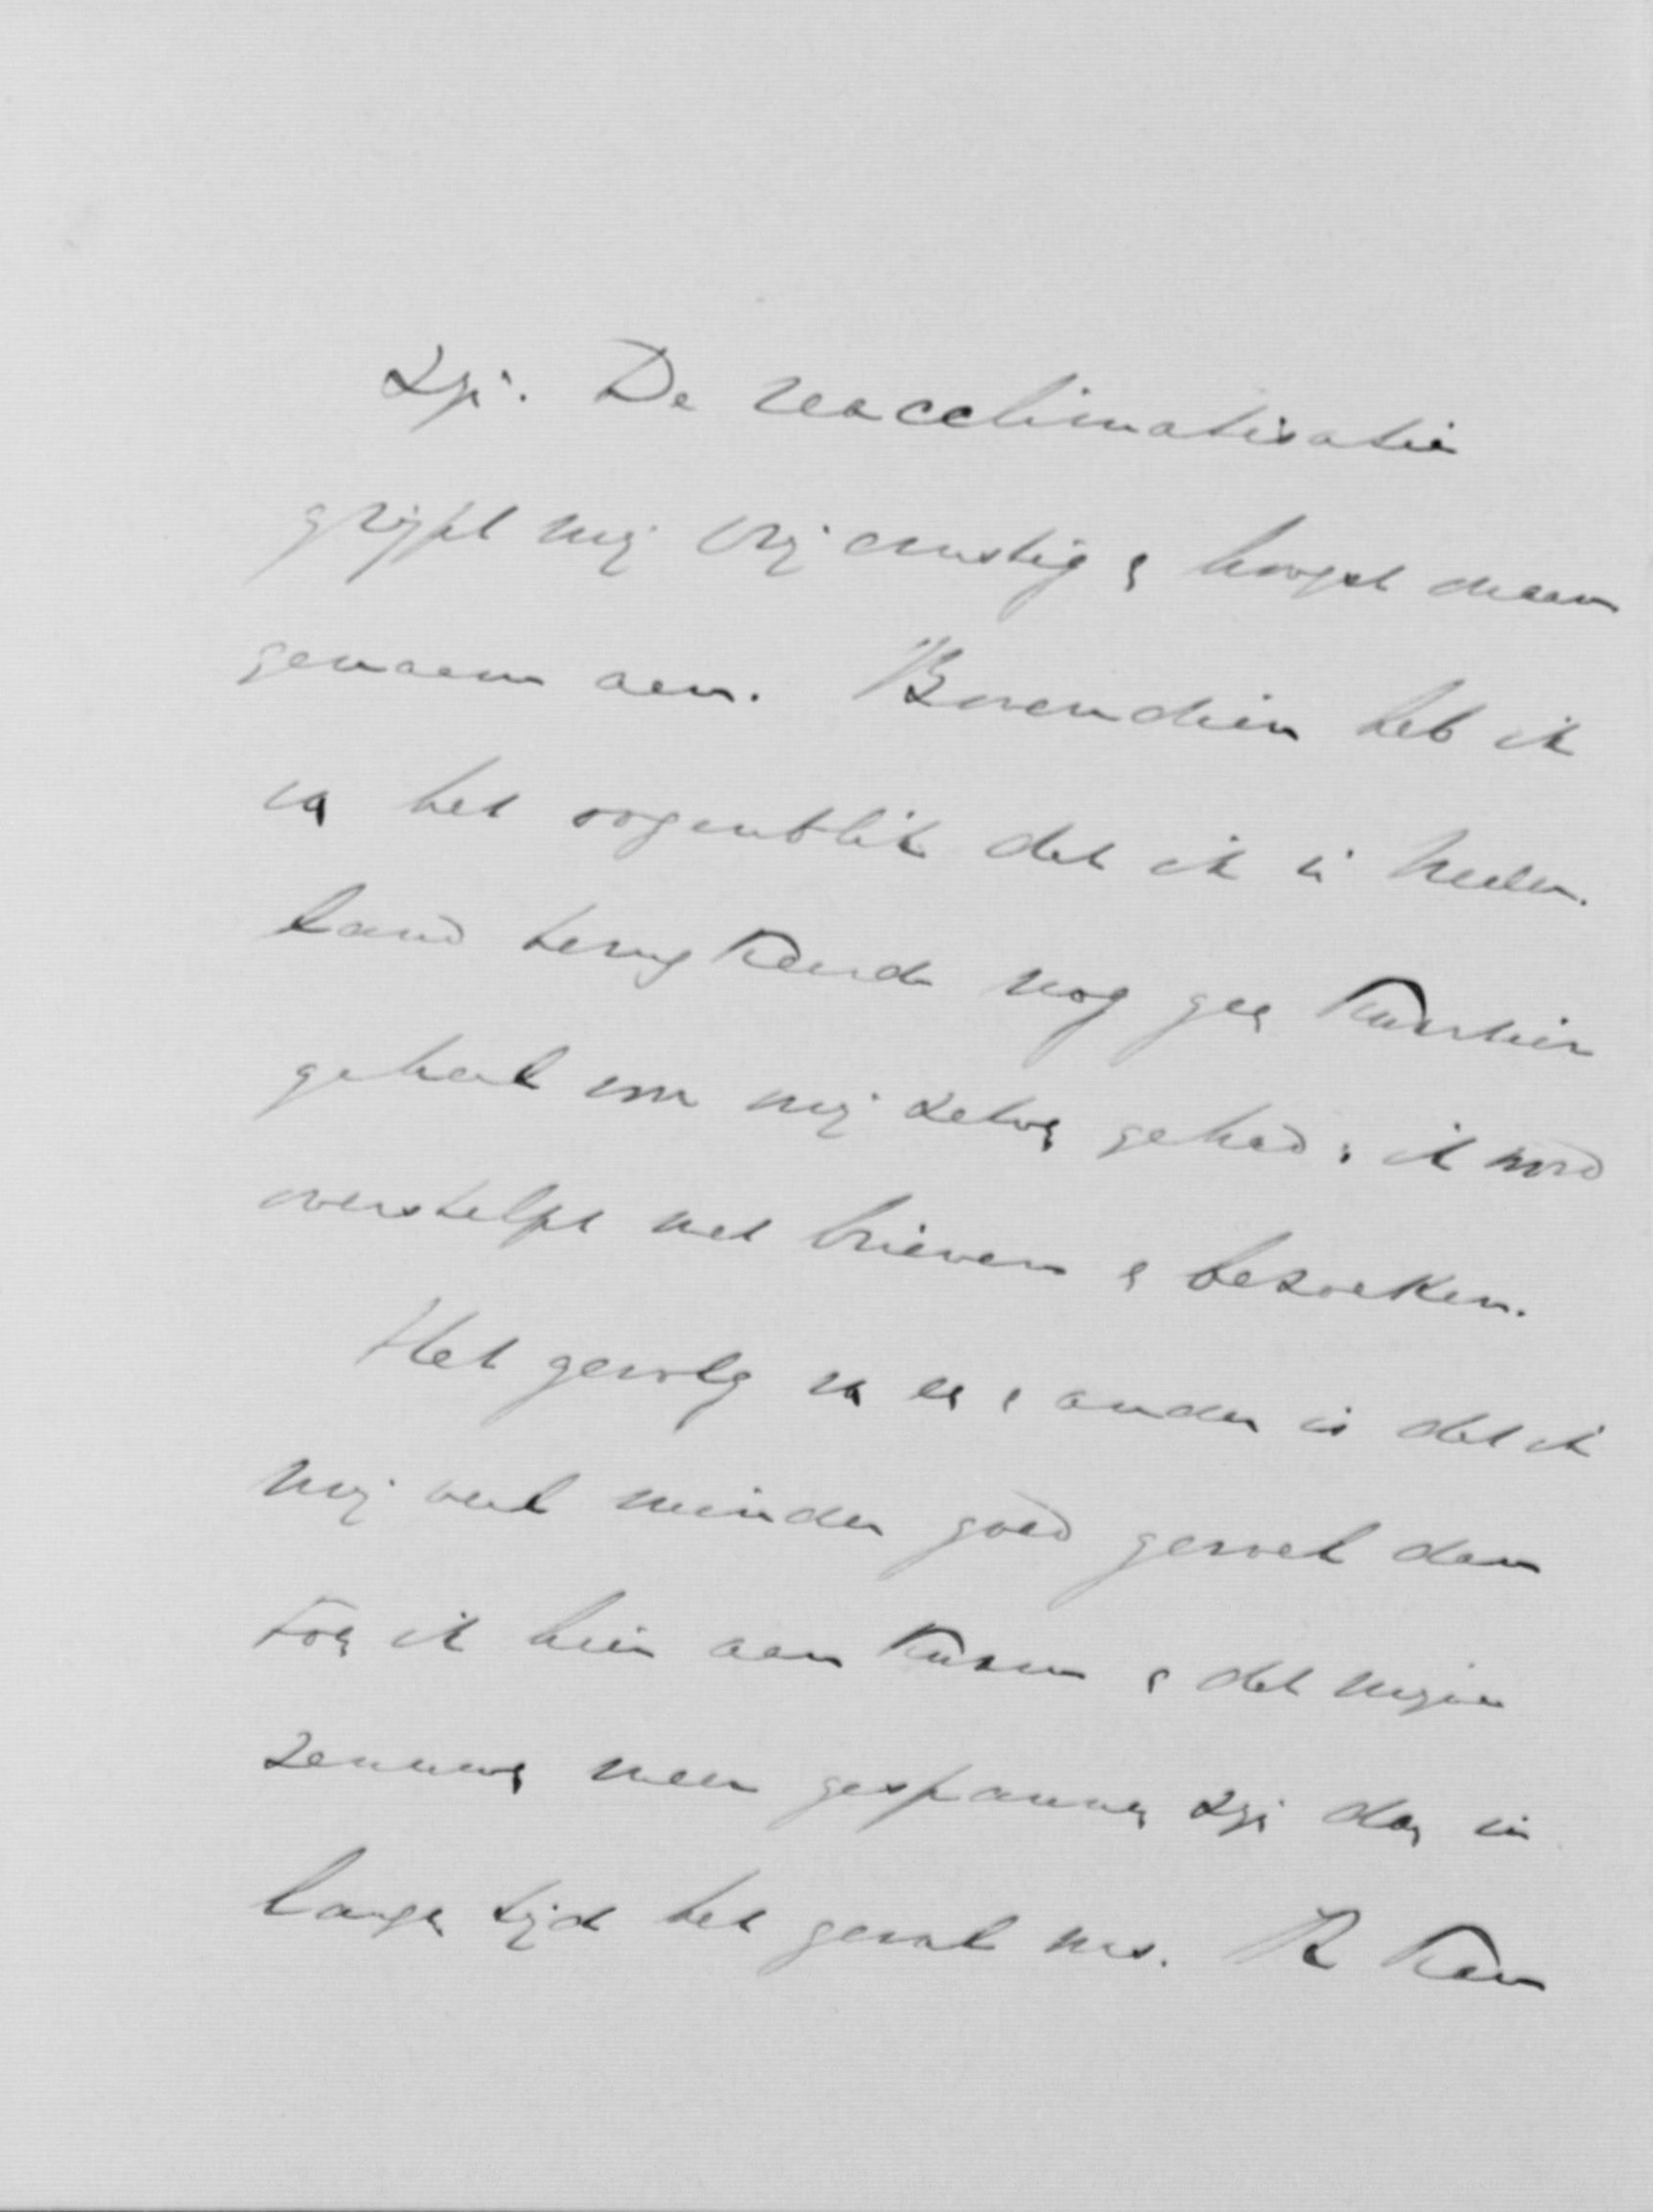 zijn. De reacclimatisatie
grijpt mij vrij ernstig & hoogst onaan
genaam aan. Bovendien heb ik
van het oogenblik dat ik in Neder-
land terugkeerde nog geen kwartier
gehad om mij zelven gehad: ik word
overstelpt met brieven & bezoeken.
Het gevolg van een & ander is dat ik
mij veel minder goed gevoel dan
toen ik hier aan kwam & dat mijn
zenuwen meer gespannen zijn dan in
langen tijd het geval was. Ik kan